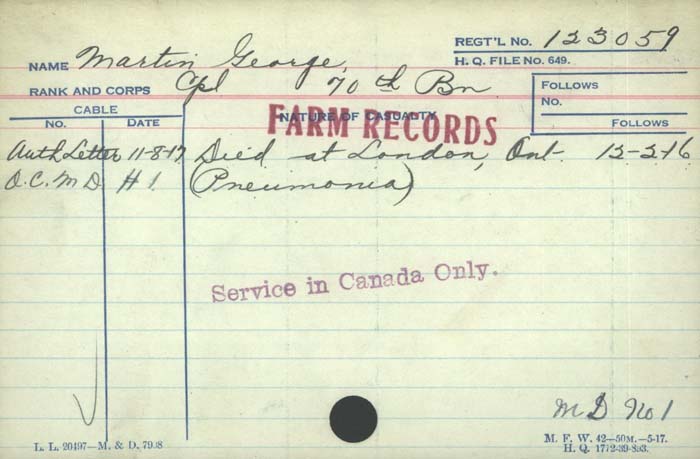 REGT'L No. 123059
NAME Martin George,
H. Q. FILE No. 649.
RANK AND CORPS Cpl 70th Bn
FOLLOWS
No.
FOLLOWS
CABLE
No. DATE
NATURE OF CASUALTY
FARM RECORDS
Auth Letter 11-8-17 Died at London, Ont 12-2-16
O.C. M D # 1 (Pneumonia)
Service in Canada Only.
M D No 1
L. L. 20497—M. & D. 7998
M. F. W. 42—50M.—5-17.
H. Q. 1772-39-893.